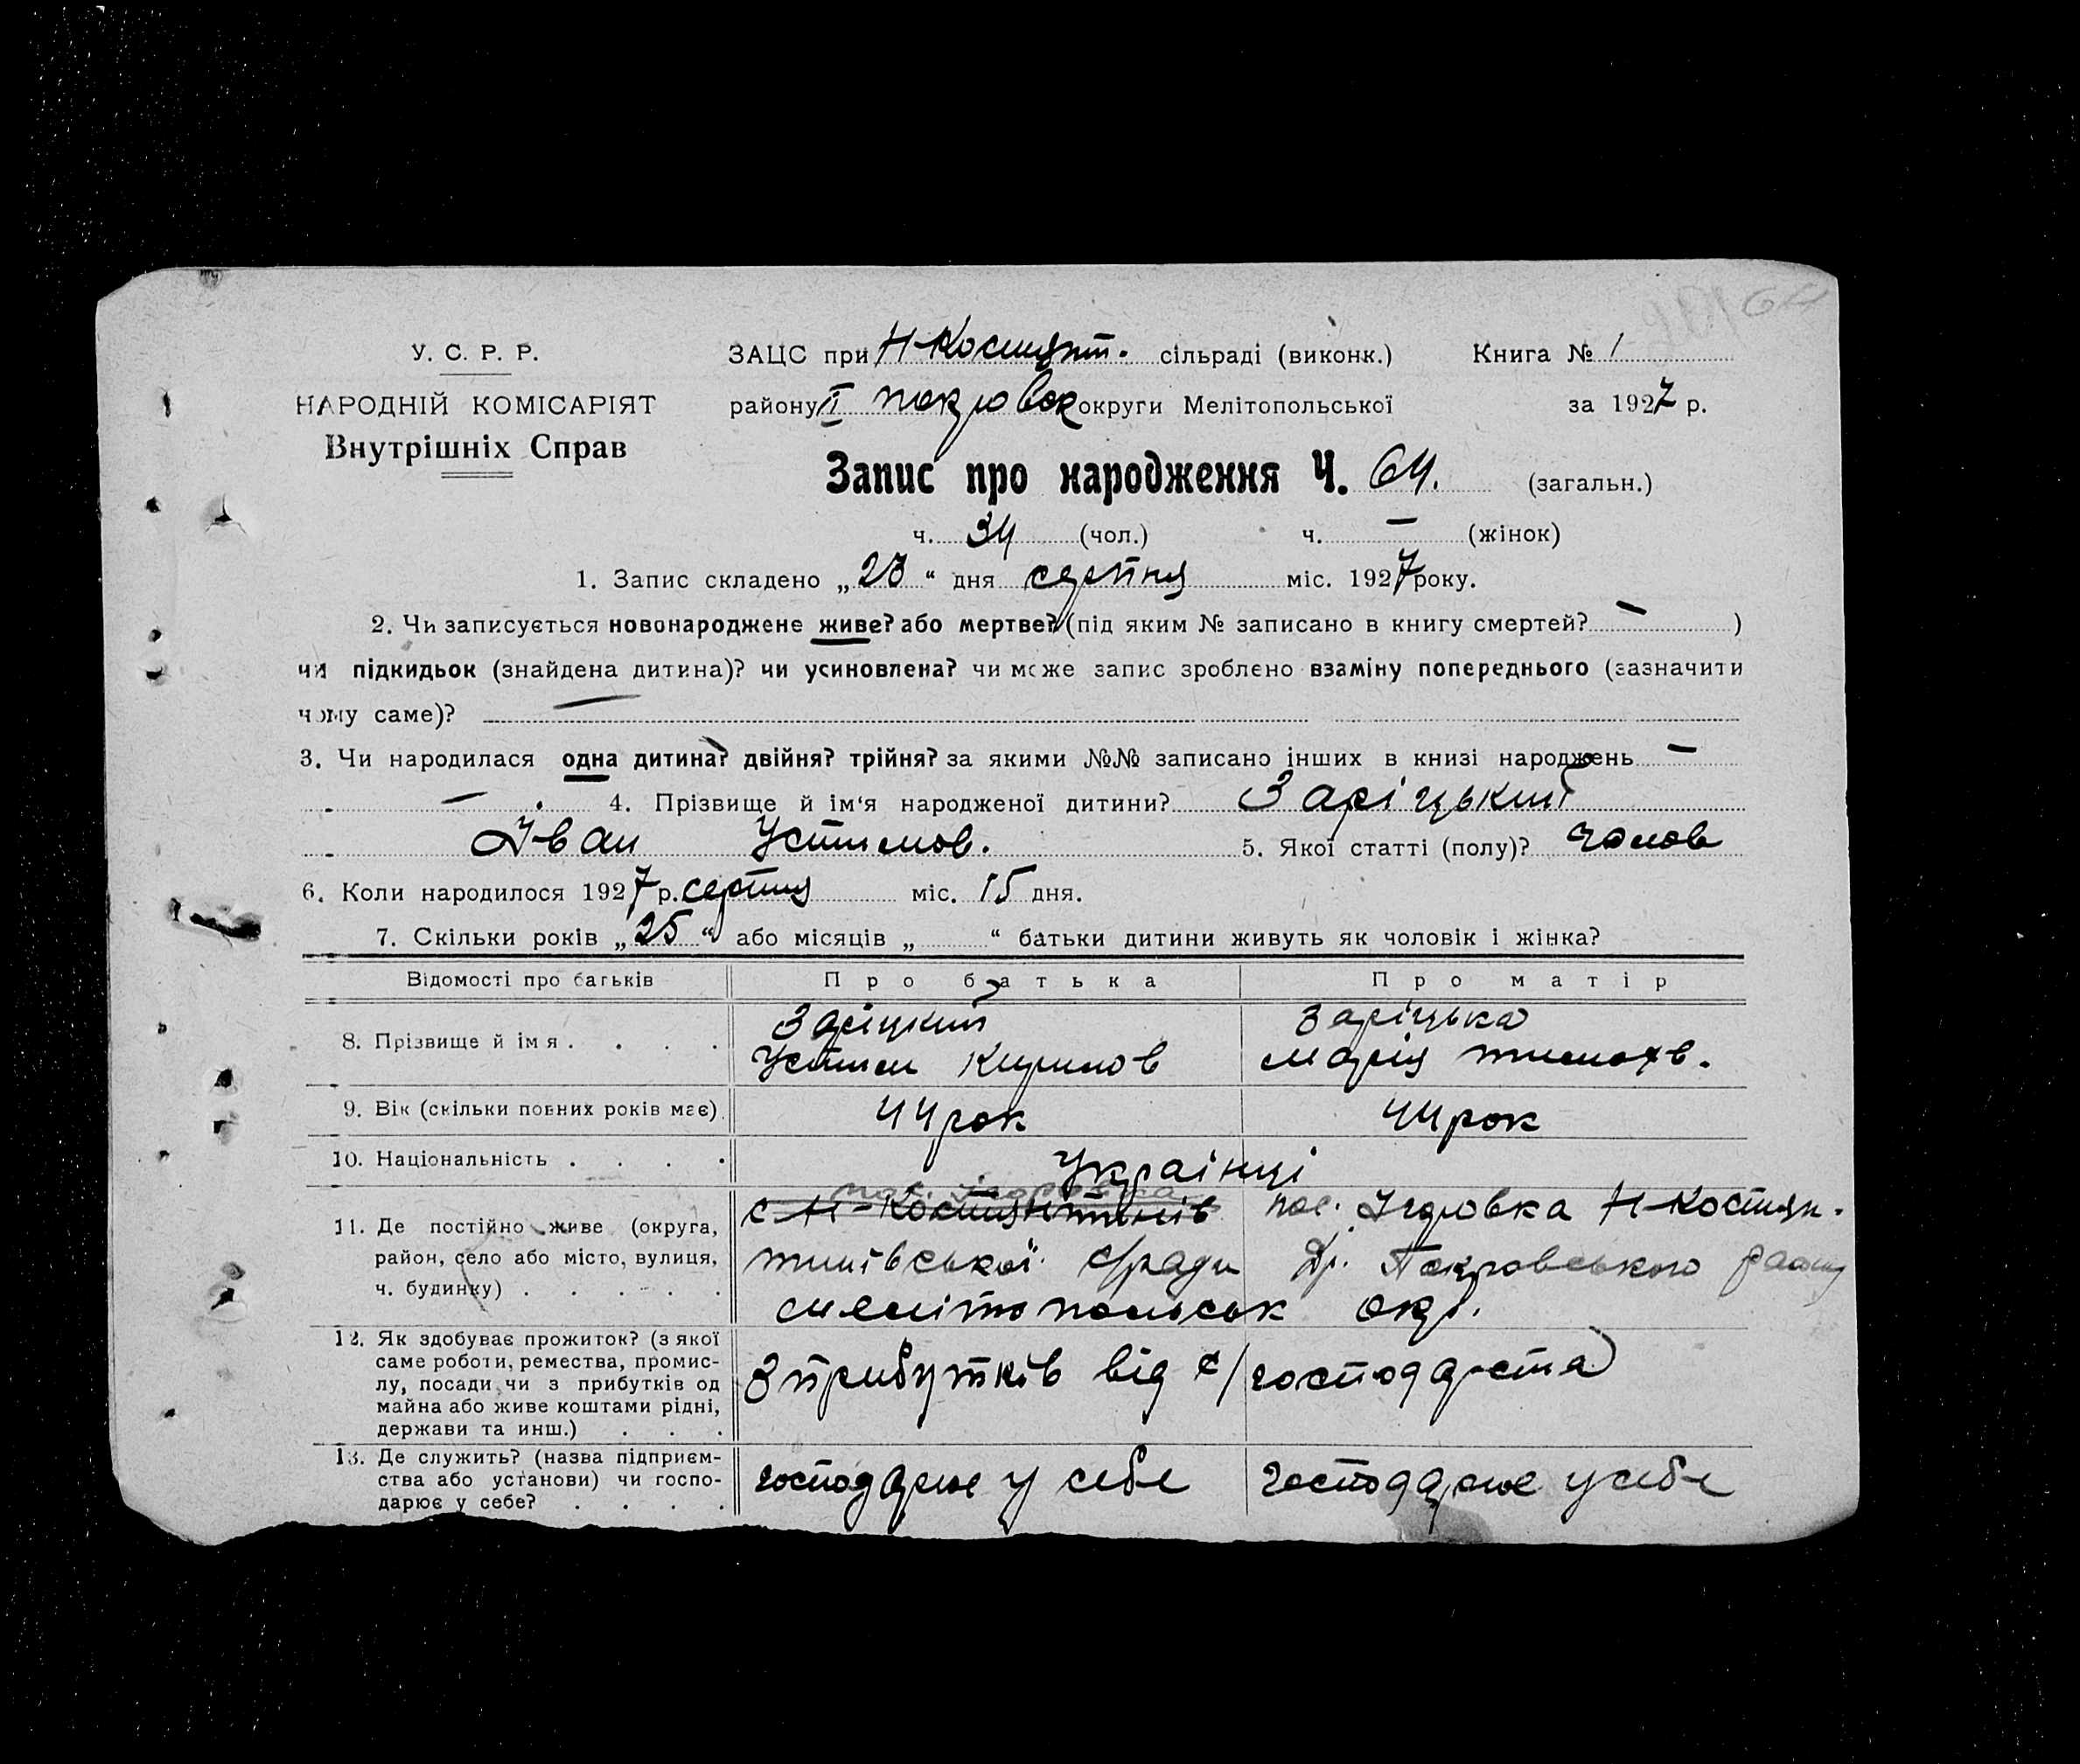 У. С. Р. Р.
НАРОДНІЙ КОМІСАРІЯТ
Внутрішніх Справ
ЗАЦС при Н-Костянт. сільраді (виконк.) Книга № 1
району ІІ покровск округи Мелітопольської за 1927 р.
Запис про народження Ч. 64. (загальн.)
ч. 34 (чол.) ч. — (жінок)
1. Запис складено „23“ дня серпня міс. 1927 року.
2. Чи записується новонароджене живе? або мертве? (під яким № записано в книгу смертей? — )
чи підкидьок (знайдена дитина)? чи усиновлена? чи може запис зроблено взаміну попереднього (зазначити
чому саме)? —
3. Чи народилася одна дитина? двійня? трійня? за якими №№ записано інших в книзі народжень —
— . 4. Прізвище й ім'я народженої дитини? Заріцький
Іван Устимов. 5. Якої статті (полу)? чолов
6. Коли народилося 1927 р. серпня міс. 15 дня.
7. Скільки років „25“ або місяців „ “ батьки дитини живуть як чоловік і жінка?
Відомості про батьків Про батька Про матір
8. Прізвище й ім я . . . .
Заріцкий
Устим Кирилов
Заріцька
Марія тимохв.
9. Вік (скільки повних років має) 44 рок 44 рок
10. Національність . . . . Українці
11. Де постійно живе (округа,
район, село або місто, вулиця,
ч. будинку) . . . . .
с Н-Костянтинів пос. Ігоровка Н-Костян-
тинівської с/ради Др. Покровського району
мелітопольськ окр.
12. Як здобуває прожиток? (з якої
саме роботи, ремества, промис-
лу, посади чи з прибутків од
майна або живе коштами рідні,
держави та инш.) . . .
З прибутків від с/господарства
13. Де служить? (назва підприєм-
ства або установи) чи госпо-
дарює у себе? . . . .
господарює у себе господарює у себе